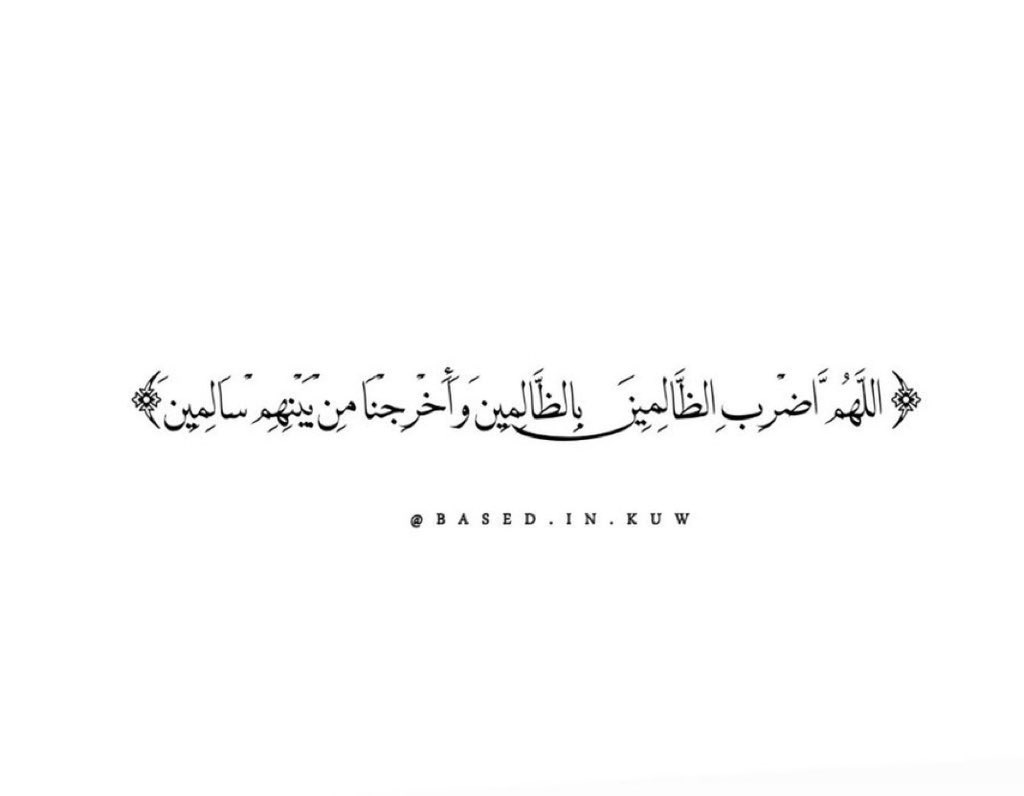 ﴿ اللَّهُمَّ اضْرِبِ الظَّالِمِينَ بِالظَّالِمِينَ وَأَخْرِجْنَا مِنْ بَيْنِهِمْ سَالِمِينَ ﴾
@BASED.IN.KUW